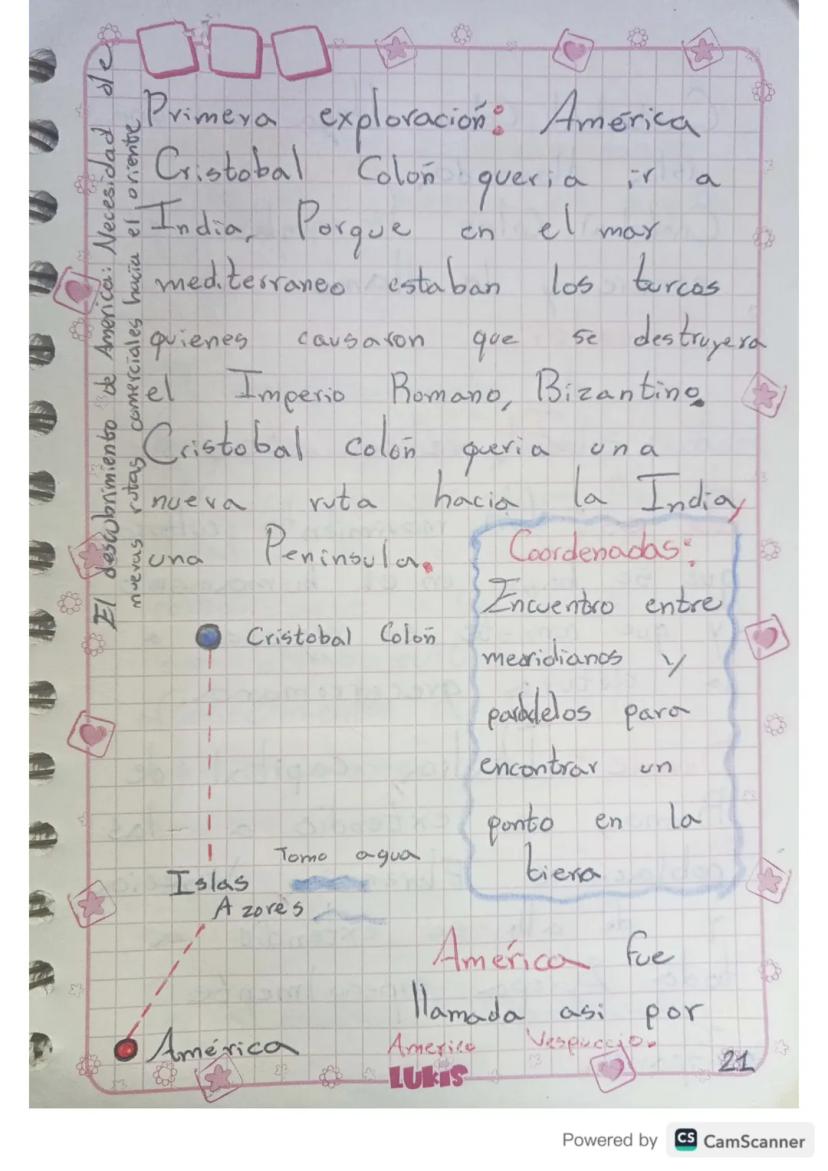 El descubrimiento de America: Necesidad de
nuevas rutas comerciales hacia el oriente
Primera exploración: América
Cristobal Colón queria ir a
India, Porque en el mar
mediterraneo estaban los turcos
quienes causaron que se destruyera
el Imperio Romano, Bizantino.
Cristobal colón queria una
nueva ruta hacia la India,
una Peninsula.
Coordenadas:
Encuentro entre
meridianos y
paralelos para
encontrar un
punto en la
tiera
Cristobal Colón
Tomo agua
Islas
Azores
América
América fue
llamada asi por
Americo Vespuccio.
LUKIS
21
Powered by CS CamScanner